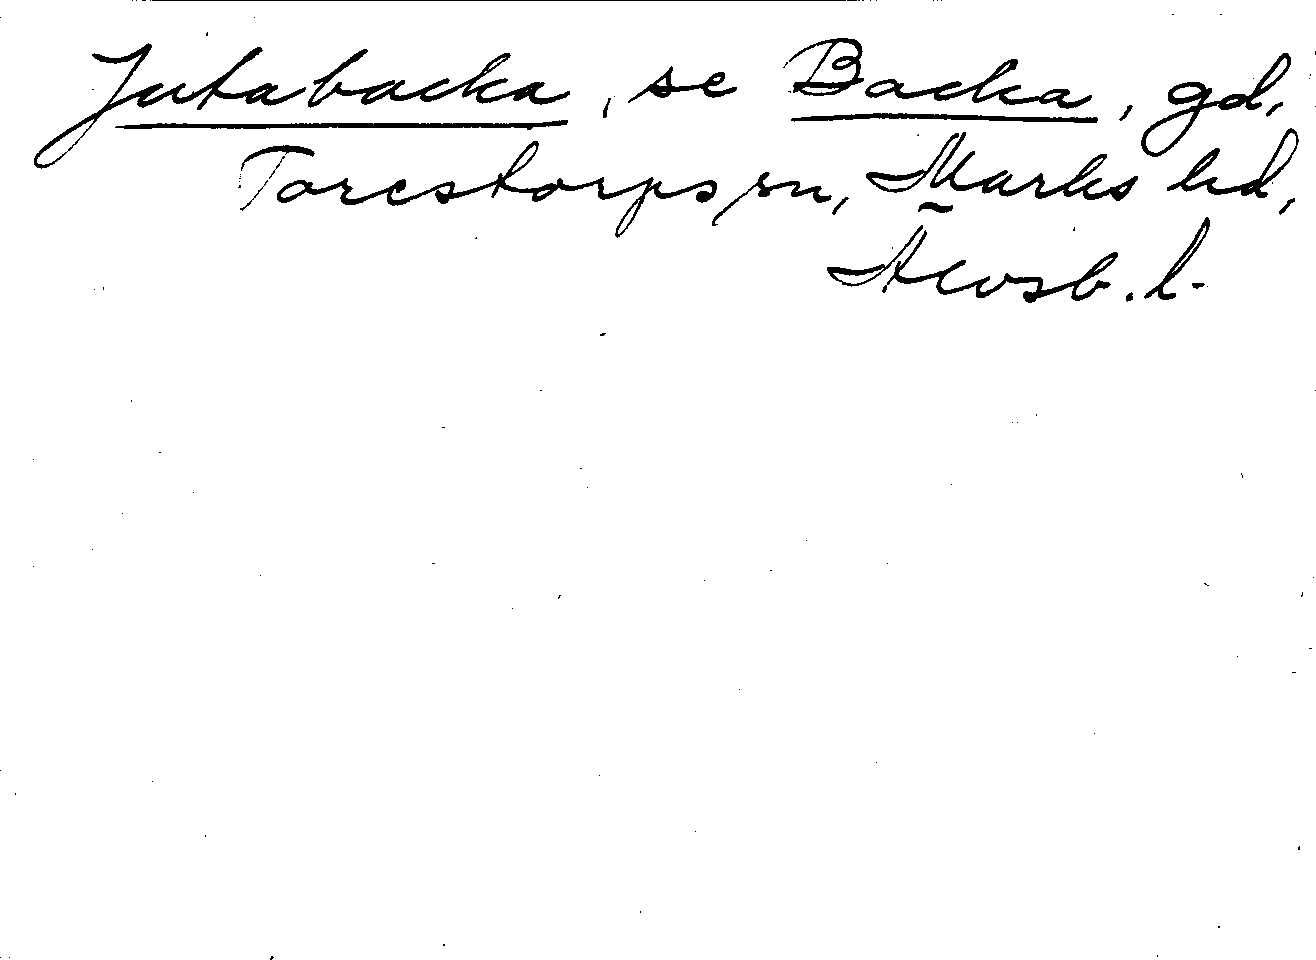 Jutabacka, se Backa, gd,
Torestorps sn, Marks hd,
Älvsb. l.